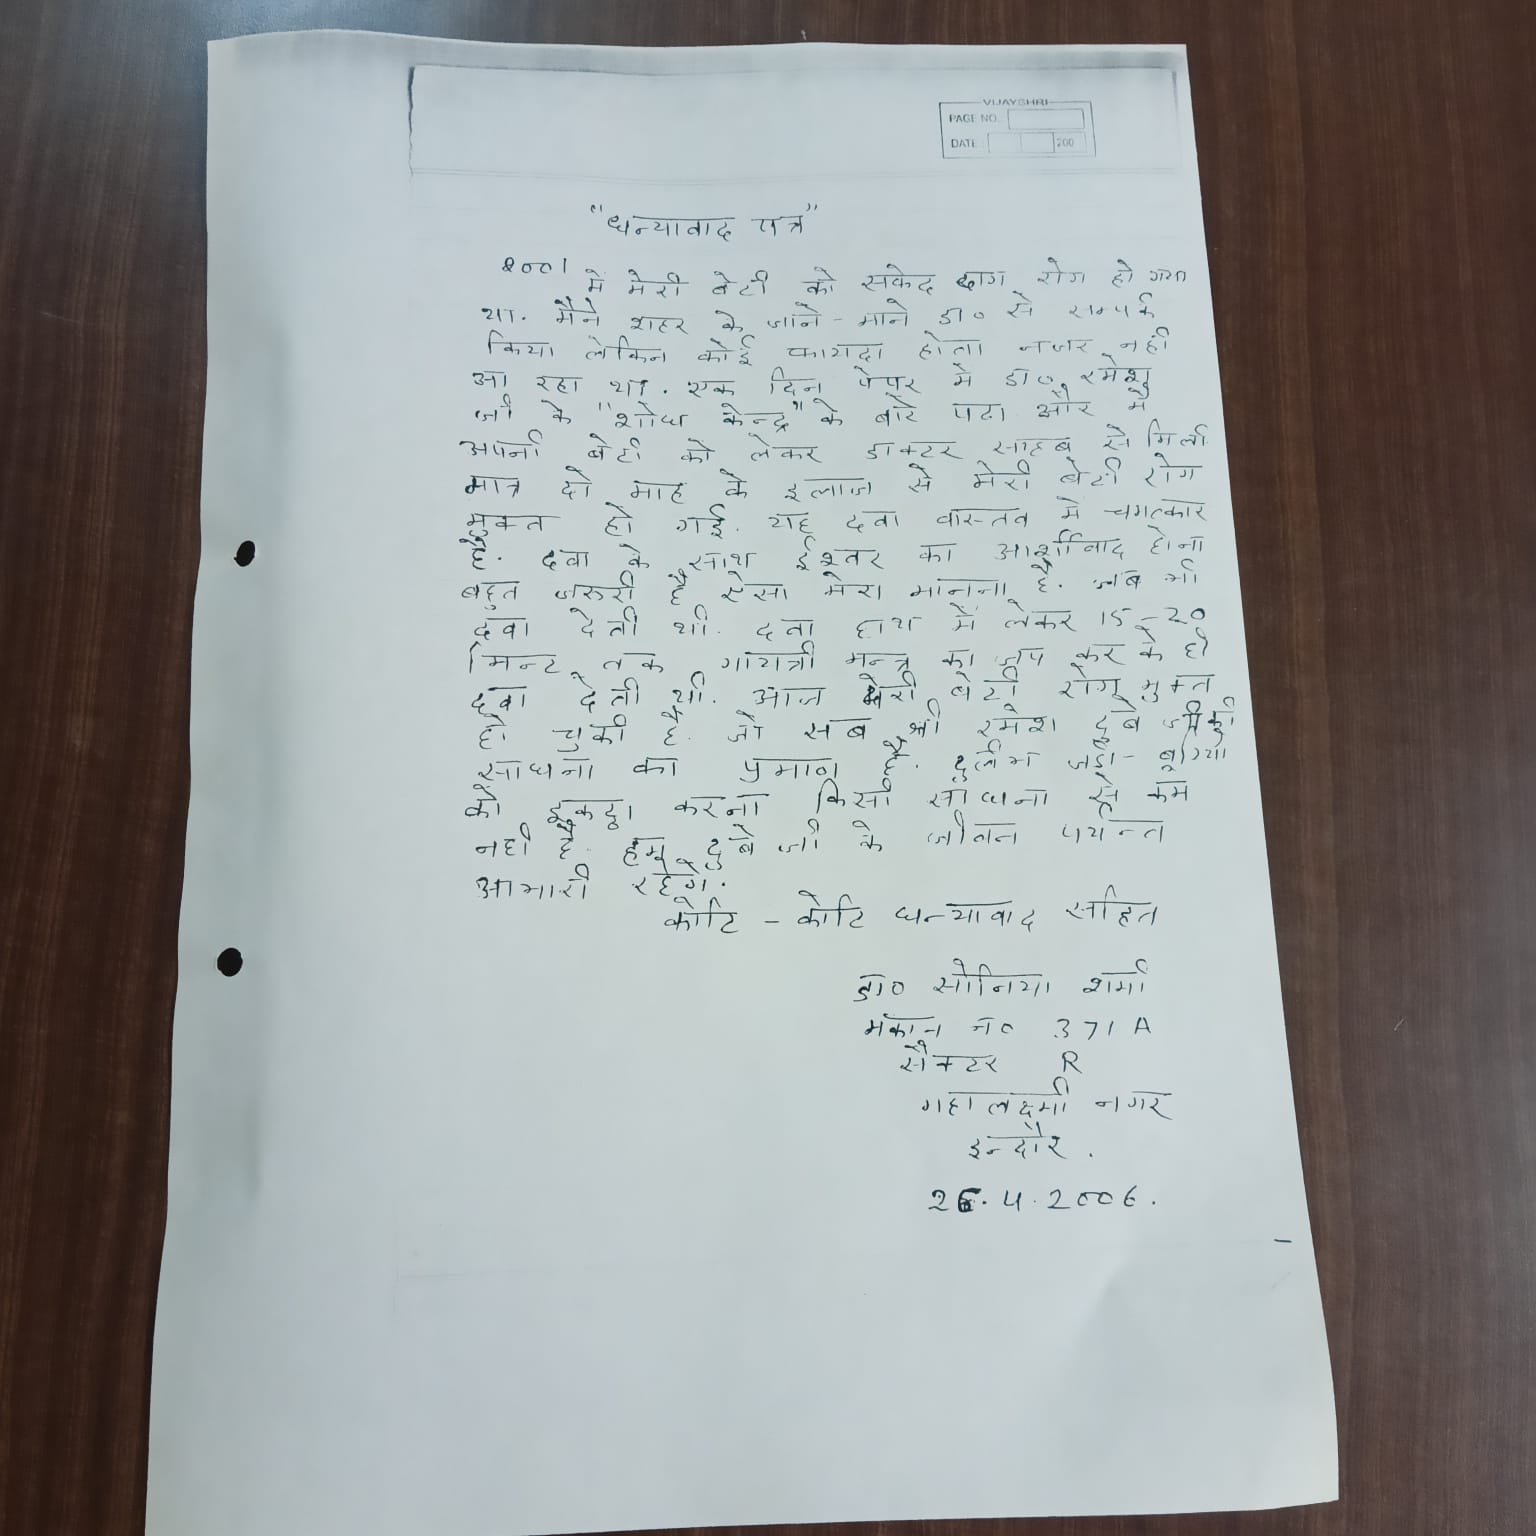 VIJAYSHRI
PAGE NO.
DATE 200
"धन्यावाद पत्र"
2001 में मेरी बेटी को सफेद दाग रोग हो गया
था. मैंने शहर के जाने-माने डा० से सम्पर्क
किया लेकिन कोई फायदा होता नजर नहीं
आ रहा था. एक दिन पेपर में डा० रमेश
जी के "शोध केन्द्र" के बारे पढा और मैं
अपनी बेटी को लेकर डाक्टर साहब से मिली
मात्र दो माह के इलाज से मेरी बेटी रोग
मुक्त हो गई. यह दवा वास्तव में चमत्कार
है. दवा के साथ ईश्वर का आर्शीवाद होना
बहुत जरुरी है ऐसा मेरा मानना है. जब भी
दवा देती थी. दवा हाथ में लेकर 15-20
मिन्ट तक गायत्री मन्त्र का जप कर के ही
दवा देती थी. आज मेरी बेटी रोग मुक्त
हो चुकी है. जो सब श्री रमेश दुबे जी की
साधना का प्रमाण है. दुर्लभ जड़ी-बूटियों
को इकट्ठा करना किसी साधना से कम
नही है. हम दुबे जी के जीवन पर्यन्त
आभारी रहेंगे.
कोटि-कोटि धन्यावाद सहित
डा० सोनिया शर्मा
मकान न० 371 A
सैक्टर R
महालक्ष्मी नगर
इन्दौर.
26.4.2006.